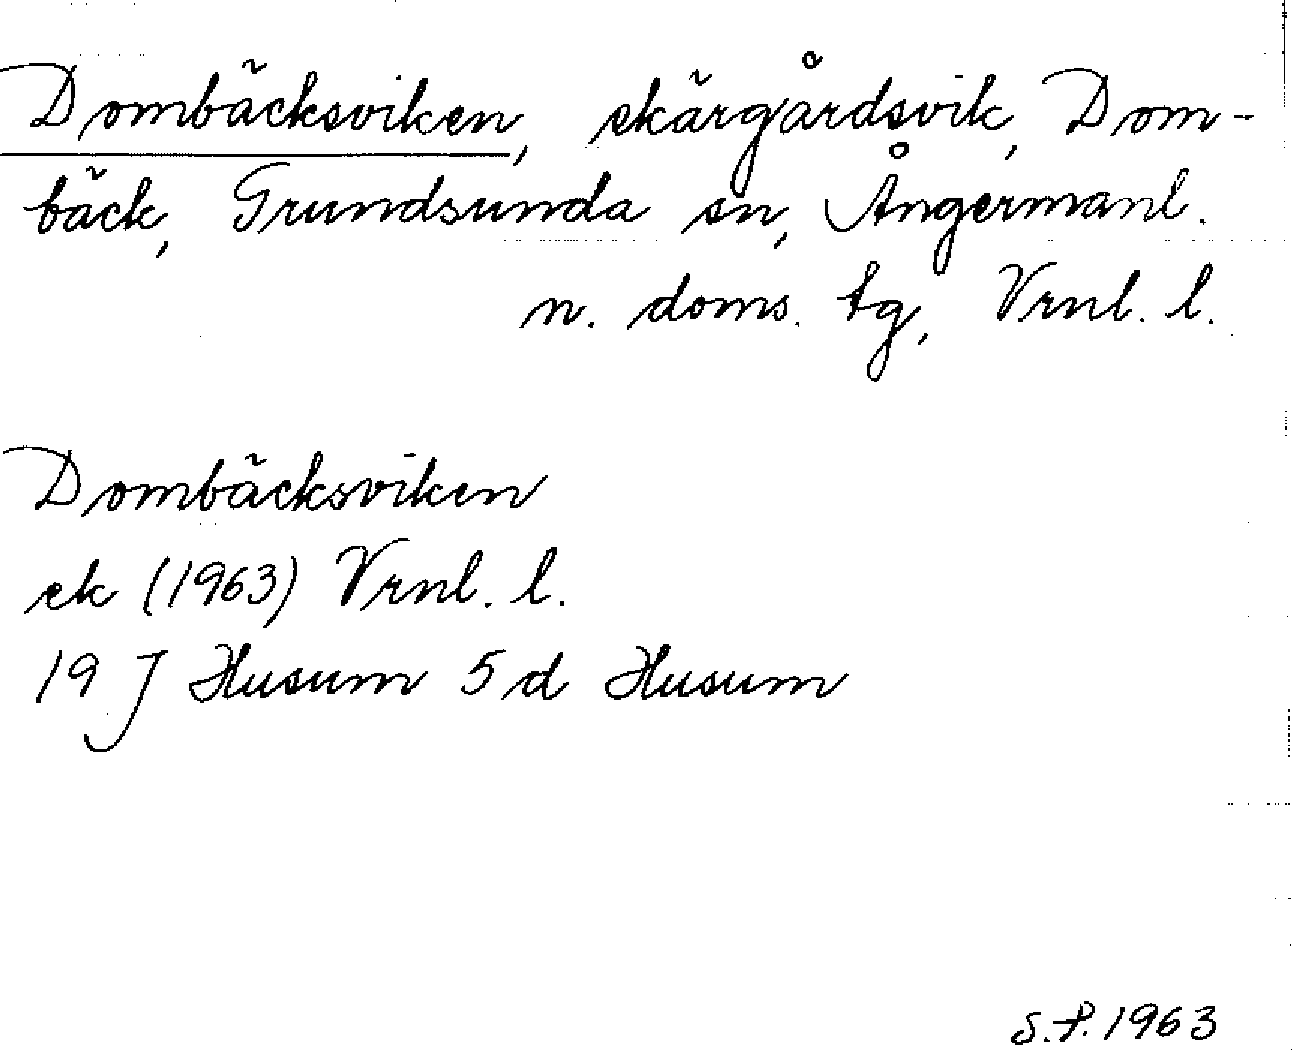 Dombäcksviken, skärgårdsvik, Dom-
bäck, Grundsunda sn, Ångermanl.
n. doms. tg, Vrnl. l.
Dombäcksviken
ek (1963) Vrnl. l.
19 J Husum 5 d Husum
S.P. 1963